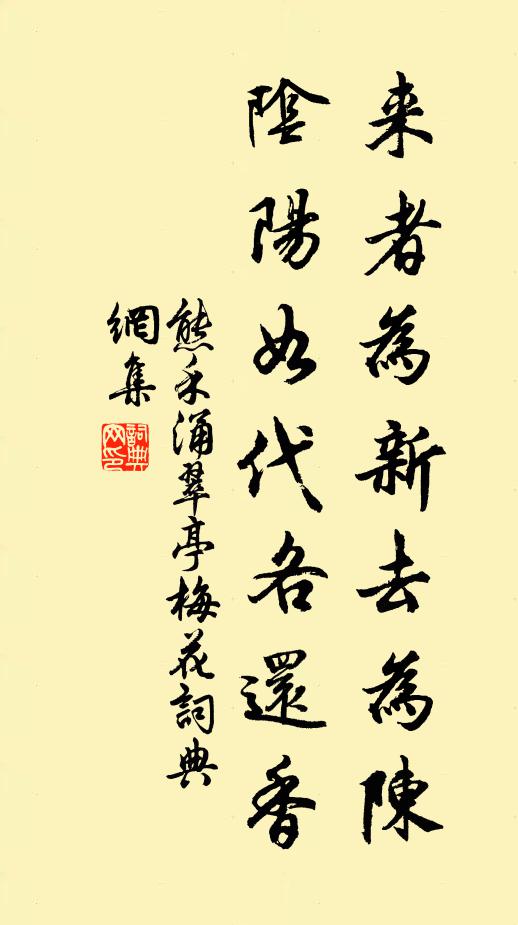 来者為新去為陳
陰陽如代各還香
熊禾涌翠亭梅花詞典
網集
詞典
网印